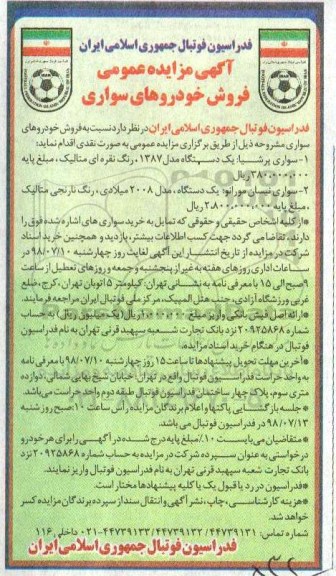 فدراسیون فوتبال جمهوری اسلامی ایران
آگهی مزایده عمومی
فروش خودروهای سواری
فدراسیون فوتبال جمهوری اسلامی ایران در نظر دارد نسبت به فروش خودروهای
سواری مشروحه ذیل از طریق برگزاری مزایده عمومی به صورت نقدی اقدام نماید:
۱-سواری پرشیا: یک دستگاه مدل ۱۳۸۷، رنگ نقره ای متالیک، مبلغ پایه
۳۸۰،۰۰۰،۰۰۰ ریال
۲-سواری نیسان مورانو: یک دستگاه، مدل ۲۰۰۸ میلادی، رنگ نارنجی متالیک
، مبلغ پایه ۲۸۰۰،۰۰۰،۰۰۰ ریال
*از کلیه اشخاص حقیقی و حقوقی که تمایل به خرید سواری های اشاره شده فوق را
دارند، تقاضا می گردد جهت کسب اطلاعات بیشتر، بازدید و همچنین خرید اسناد
شرکت در مزایده از تاریخ انتشار این آگهی لغایت روز چهارشنبه ۹۸/۰۷/۱۰ در
ساعات اداری روزهای هفته به غیر از پنجشنبه و جمعه و روزهای تعطیل از ساعت
۹ صبح الی ۱۵ با معرفی نامه به نشانی تهران: کیلومتر ۵ اتوبان تهران، کرج، ضلع
غربی ورزشگاه آزادی، جنب هتل المپیک، مرکز ملی فوتبال ایران مراجعه فرمایند.
*ارائه اصل فیش بانکی واریز مبلغ ۱،۰۰۰،۰۰۰ ریال (یک میلیون ریال) به حساب
شماره ۲۰۹۲۵۸۶۸ نزد بانک تجارت شعبه سپهبد قرنی تهران به نام فدراسیون
فوتبال در هنگام خرید اسناد مزایده.
*آخرین مهلت تحویل پیشنهادها تا ساعت ۱۵ روز چهارشنبه ۹۸/۰۷/۱۰ با معرفی نامه
به واحد حراست فدراسیون فوتبال واقع در تهران خیابان شیخ بهایی شمالی، دوازده
متری سوم، پلاک چهار ساختمان فدراسیون فوتبال طبقه دوم واحد حراست می باشد.
*جلسه بازگشایی پاکتها و اعلام برندگان مزایده رأس ساعت ۱۰ صبح روز شنبه
۹۸/۰۷/۱۳ در فدراسیون فوتبال می باشد.
*متقاضیان می بایست ۱۰٪ مبلغ پایه درج شده در آگهی را برای هر خودرو
درخواستی به عنوان سپرده شرکت در مزایده به حساب شماره ۲۰۹۲۵۸۶۸ نزد
بانک تجارت شعبه سپهبد قرنی تهران به نام فدراسیون فوتبال واریز نمایند.
*فدراسیون در رد یا قبول یک یا کلیه پیشنهادها مختار است.
*هزینه کارشناسی، چاپ، نشر آگهی و انتقال سند از سپرده برندگان مزایده کسر
خواهد شد.
شماره تماس: ۴۴۷۳۹۱۳۱/ ۴۴۷۳۹۱۳۲/ ۴۴۷۳۹۱۳۳-۰۲۱ داخلی ۱۱۶
فدراسیون فوتبال جمهوری اسلامی ایران